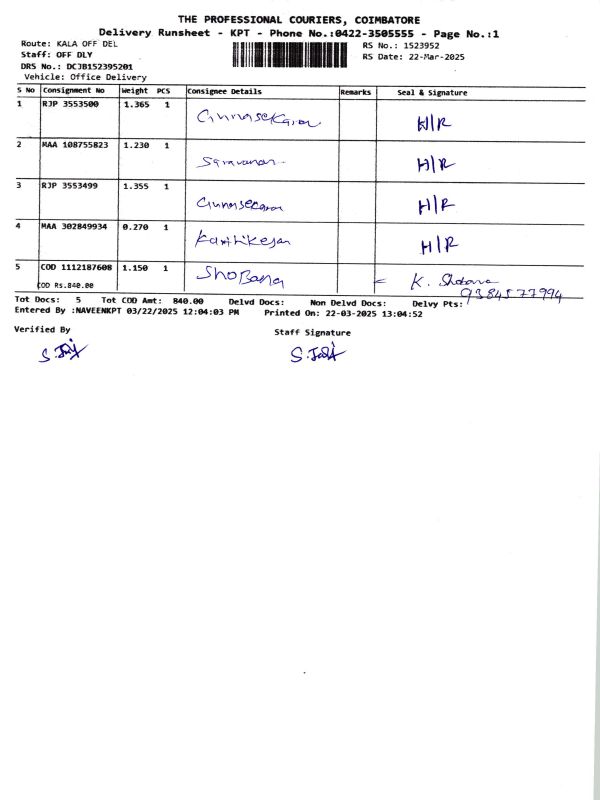 THE PROFESSIONAL COURIERS, COIMBATORE
Delivery Runsheet - KPT - Phone No.:0422-3505555 - Page No.:1
Route: KALA OFF DEL RS No.: 1523952
Staff: OFF DLY RS Date: 22-Mar-2025
DRS No.: DCJB152395201
Vehicle: Office Delivery
S No Consignment No Weight PCS Consignee Details Remarks Seal & Signature
1 RJP 3553500 1.365 1 Gunasekaran H/R
2 MAA 108755823 1.230 1 Saravanan H/R
3 RJP 3553499 1.355 1 Gunasecaran H/R
4 MAA 302849934 0.270 1 Karthikesan H/R
5 COD 1112187608 1.150 1 ShoBana K. Shobana
COD Rs.840.00 9384577994
Tot Docs: 5 Tot COD Amt: 840.00 Delvd Docs: Non Delvd Docs: Delvy Pts:
Entered By :NAVEENKPT 03/22/2025 12:04:03 PM Printed On: 22-03-2025 13:04:52
Verified By Staff Signature